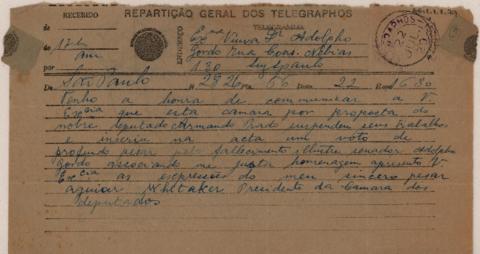 REPARTIÇÃO GERAL DOS TELEGRAPHOS
RECEBIDO
TELEGRAMMA
de
ENDEREÇO
Exma Viuva Dr Adolpho
Gordo Rua Cons. Nebias
de
130 S. Paulo
por
De São Paulo N 2926 Pal 66 Data 22 Hora 1630
Tenho a honra de communicar a V.
Excia que esta camara por proposta do
nobre deputado Armando Prado suspendeu seus trabalhos
inseriu na acta um voto de
profundo pezar pelo fallecimento illustre senador Adolpho
Gordo associando me justa homenagem apresento V
Excia as expressões do meu sincero pesar
Aguiar Whitaker Presidente da Camara dos
deputados